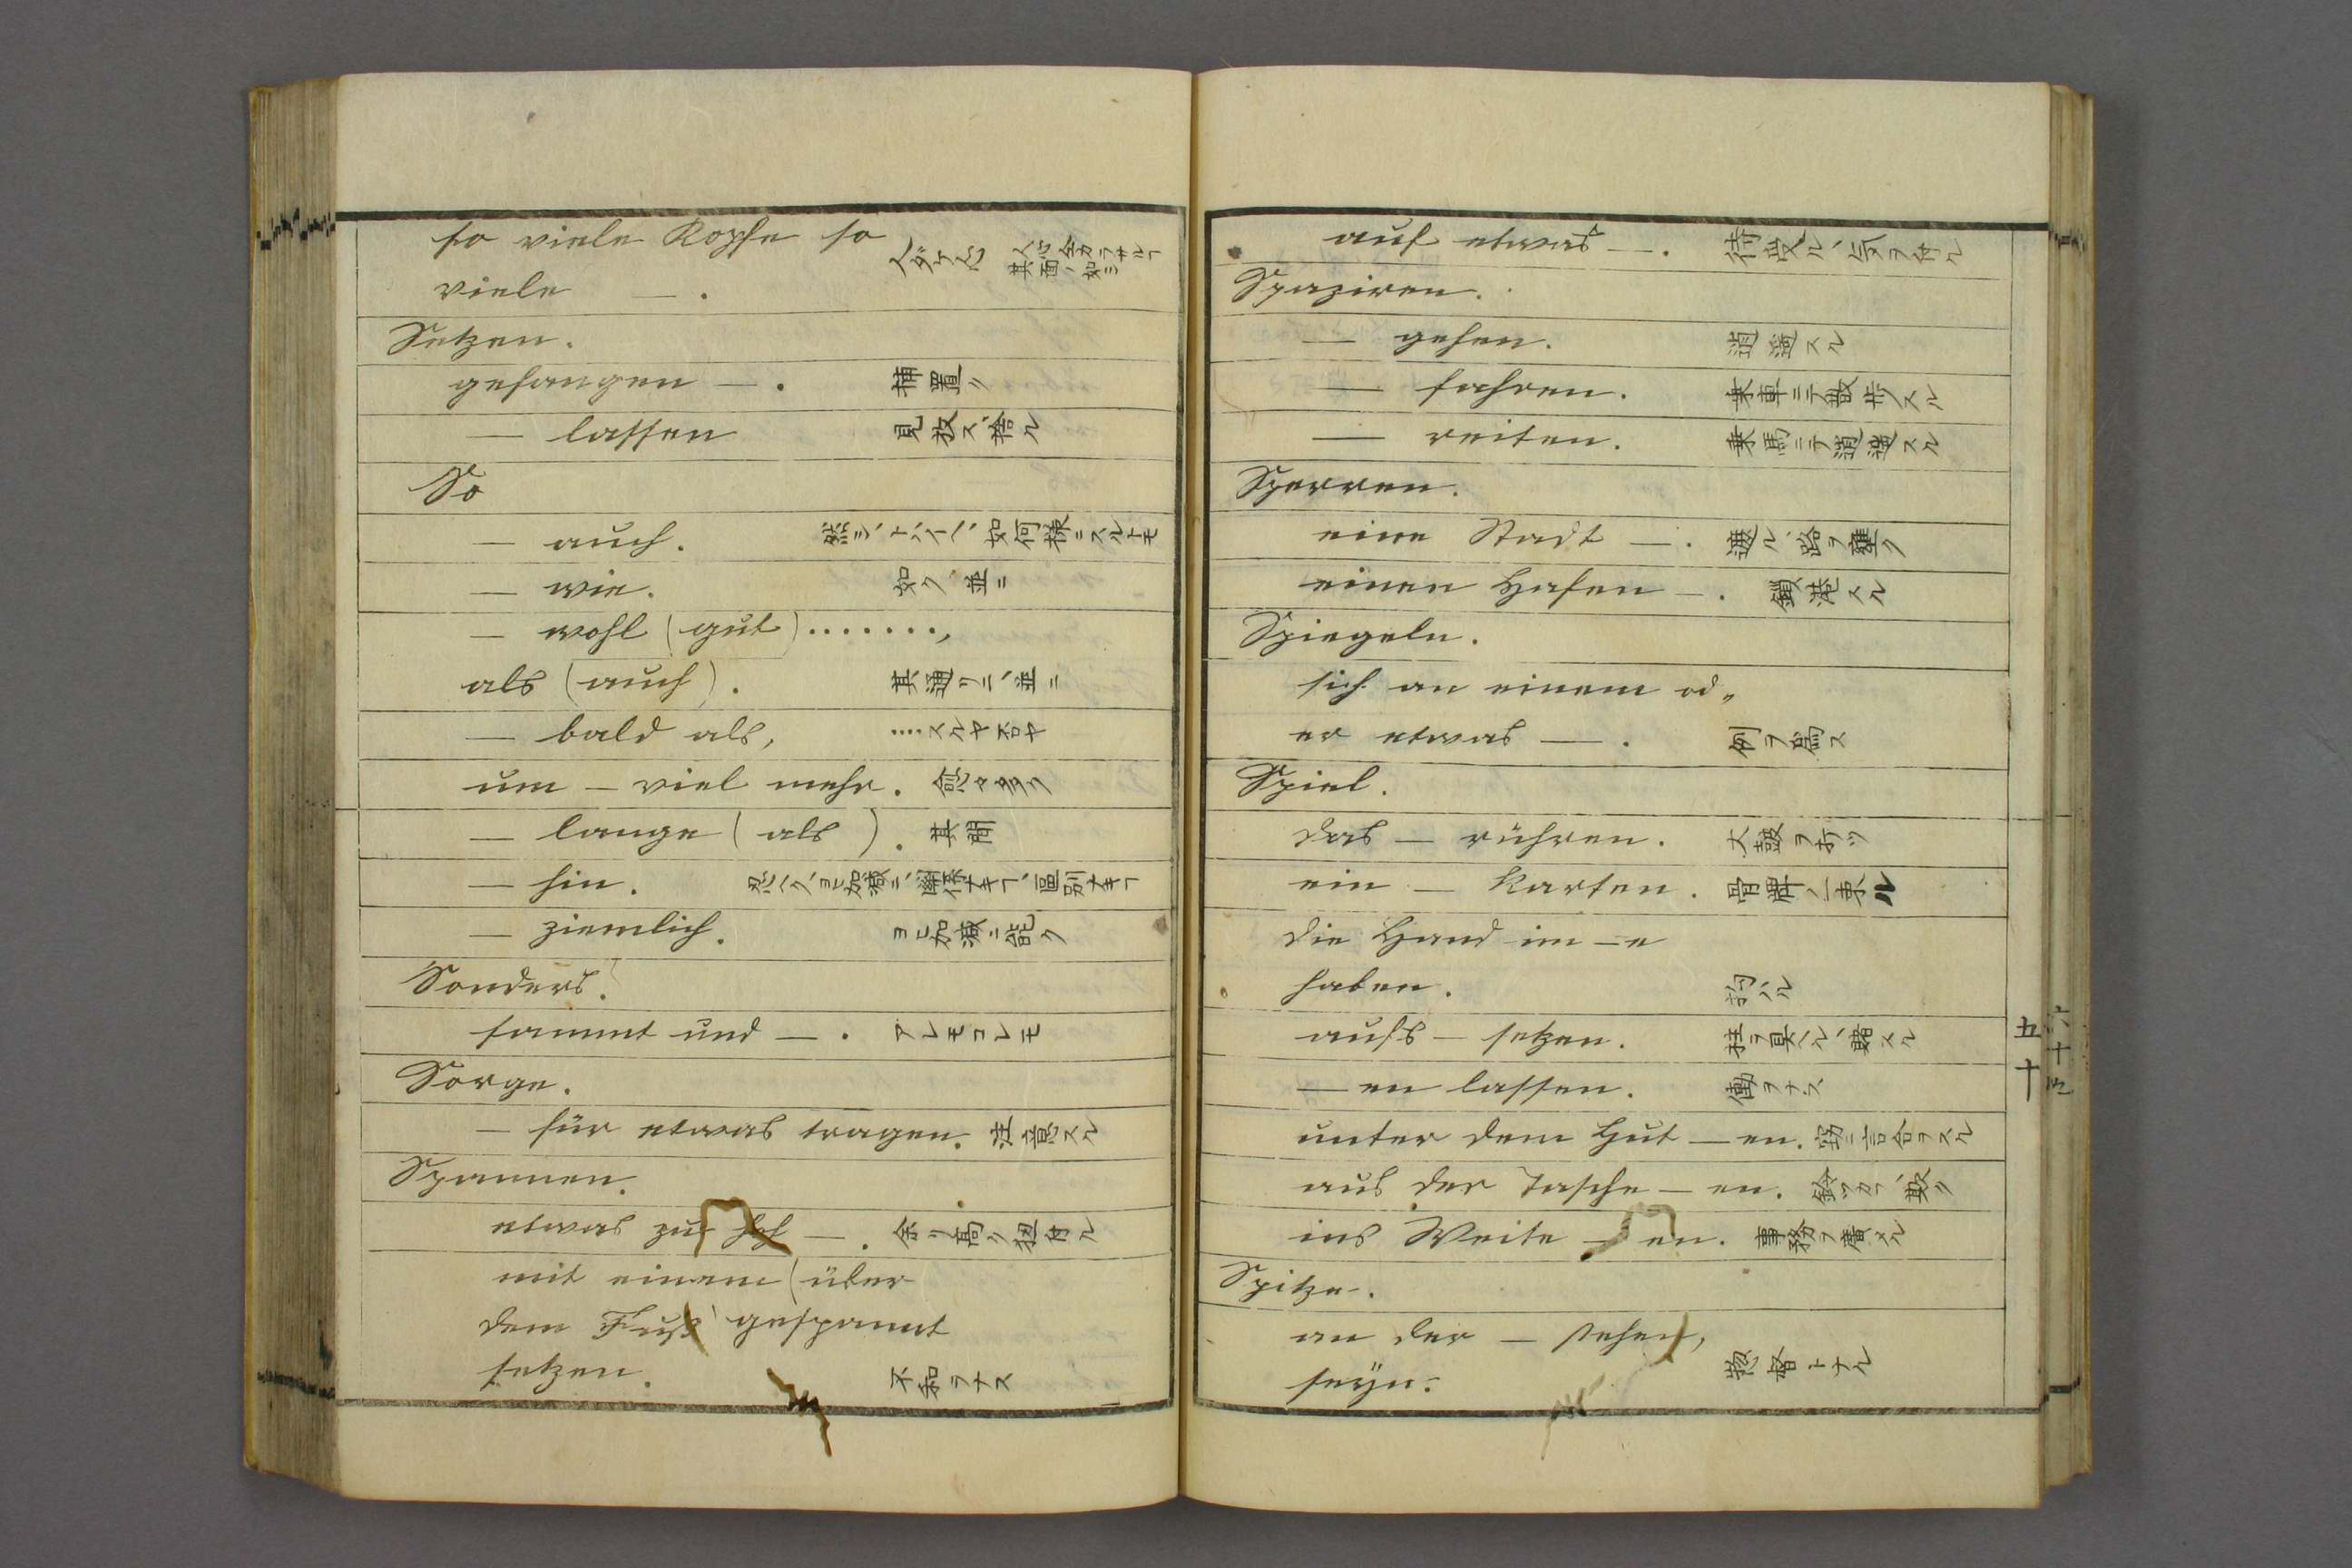 so viele Kopfe so
viele —.
Setzen.
gefangen —. 捕置ク
— lassen 見放ス、捨ル
So
— auch. 然シ、トハイヘ、如何様ニスルトモ
— wie. 如ク 並ニ
— wohl (gut) ........,
als (auch). 其通リニ、並ニ
— bald als, ....スルヤ否ヤ
um — viel mehr. 愈々多ク
— lange (als ). 其間
— hin.
— ziemlich. ヨヒ加減ニ能ク
Sonders.
sammt und —. アレモコレモ
Sorge.
— für etwas tragen. 注意スル
Spannen.
etwas zu hoh —. 余リ高ク
mit einem (über
dem Fuß) gespannt
setzen. 不和ヲナス
auf etwas —. 待受ル、気ヲ付ル
Spaziren.
— gehen. 逍遥スル
— fahren. 乗車ニテ散歩スル
— reiten. 乗馬ニテ逍遥スル
Sperren.
eine Stadt —. 路ヲ壅ク
einen Hafen —. 鎖港スル
Spiegeln.
sich an einem od„
er etwas —. 例ヲ為ス
Spiel.
das — rühren. 大鼓ヲ打ツ
ein — Karten. 骨牌ノ一束
die Hand im —e
haben.
aufs — setzen. 賭スル
—en lassen. 働ヲナス
unter dem Hut —en. 窃ニ言合ヲスル
aus der Tasche —en.
ins Weite —en. 事務ヲ廣メル
Spitze.
an der — stehen,
seÿn. 惣督トナル
五十